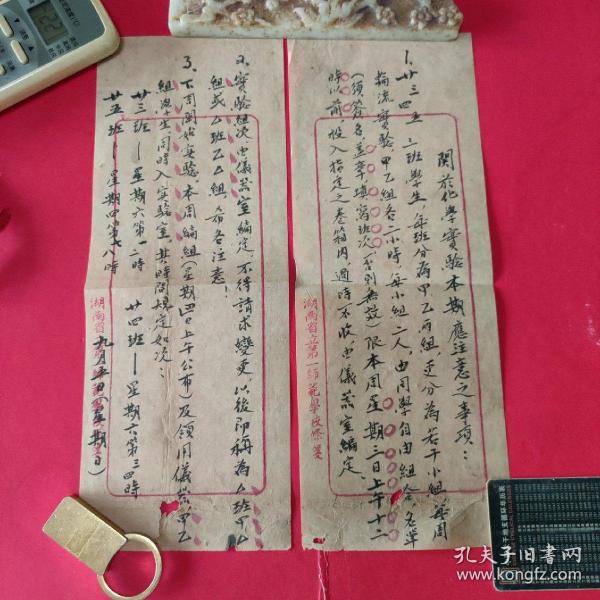 關於化學實驗本期應注意之事項：
1、廿三四五 三班學生，每班分為甲乙兩組，更分為若干小組，每周
輪流實驗，甲乙組各二小時，每小組二人，由同學自由組合，名單
（須簽名蓋章填寫班次否則無效）限本周星期三日上午十二
時以前，投入指定之卷箱內，過時不收，由儀器室編定。
湖南省立第一師範學校條箋
2、實驗組次，由儀器室編定，不得請求變更，以後即稱為△班甲△
組或△班乙△組，希各注意！
3、下周開始實驗，本周編組（星期四日上午公布）及領用儀器，甲乙
組學生，同時入實驗室，其時間規定如次：
廿三班—星期六第一二時 廿四班—星期六第三四時
廿五班—星期四第七八時
湖南省
九月 日（星期日）
孔夫子旧书网
www.kongfz.com